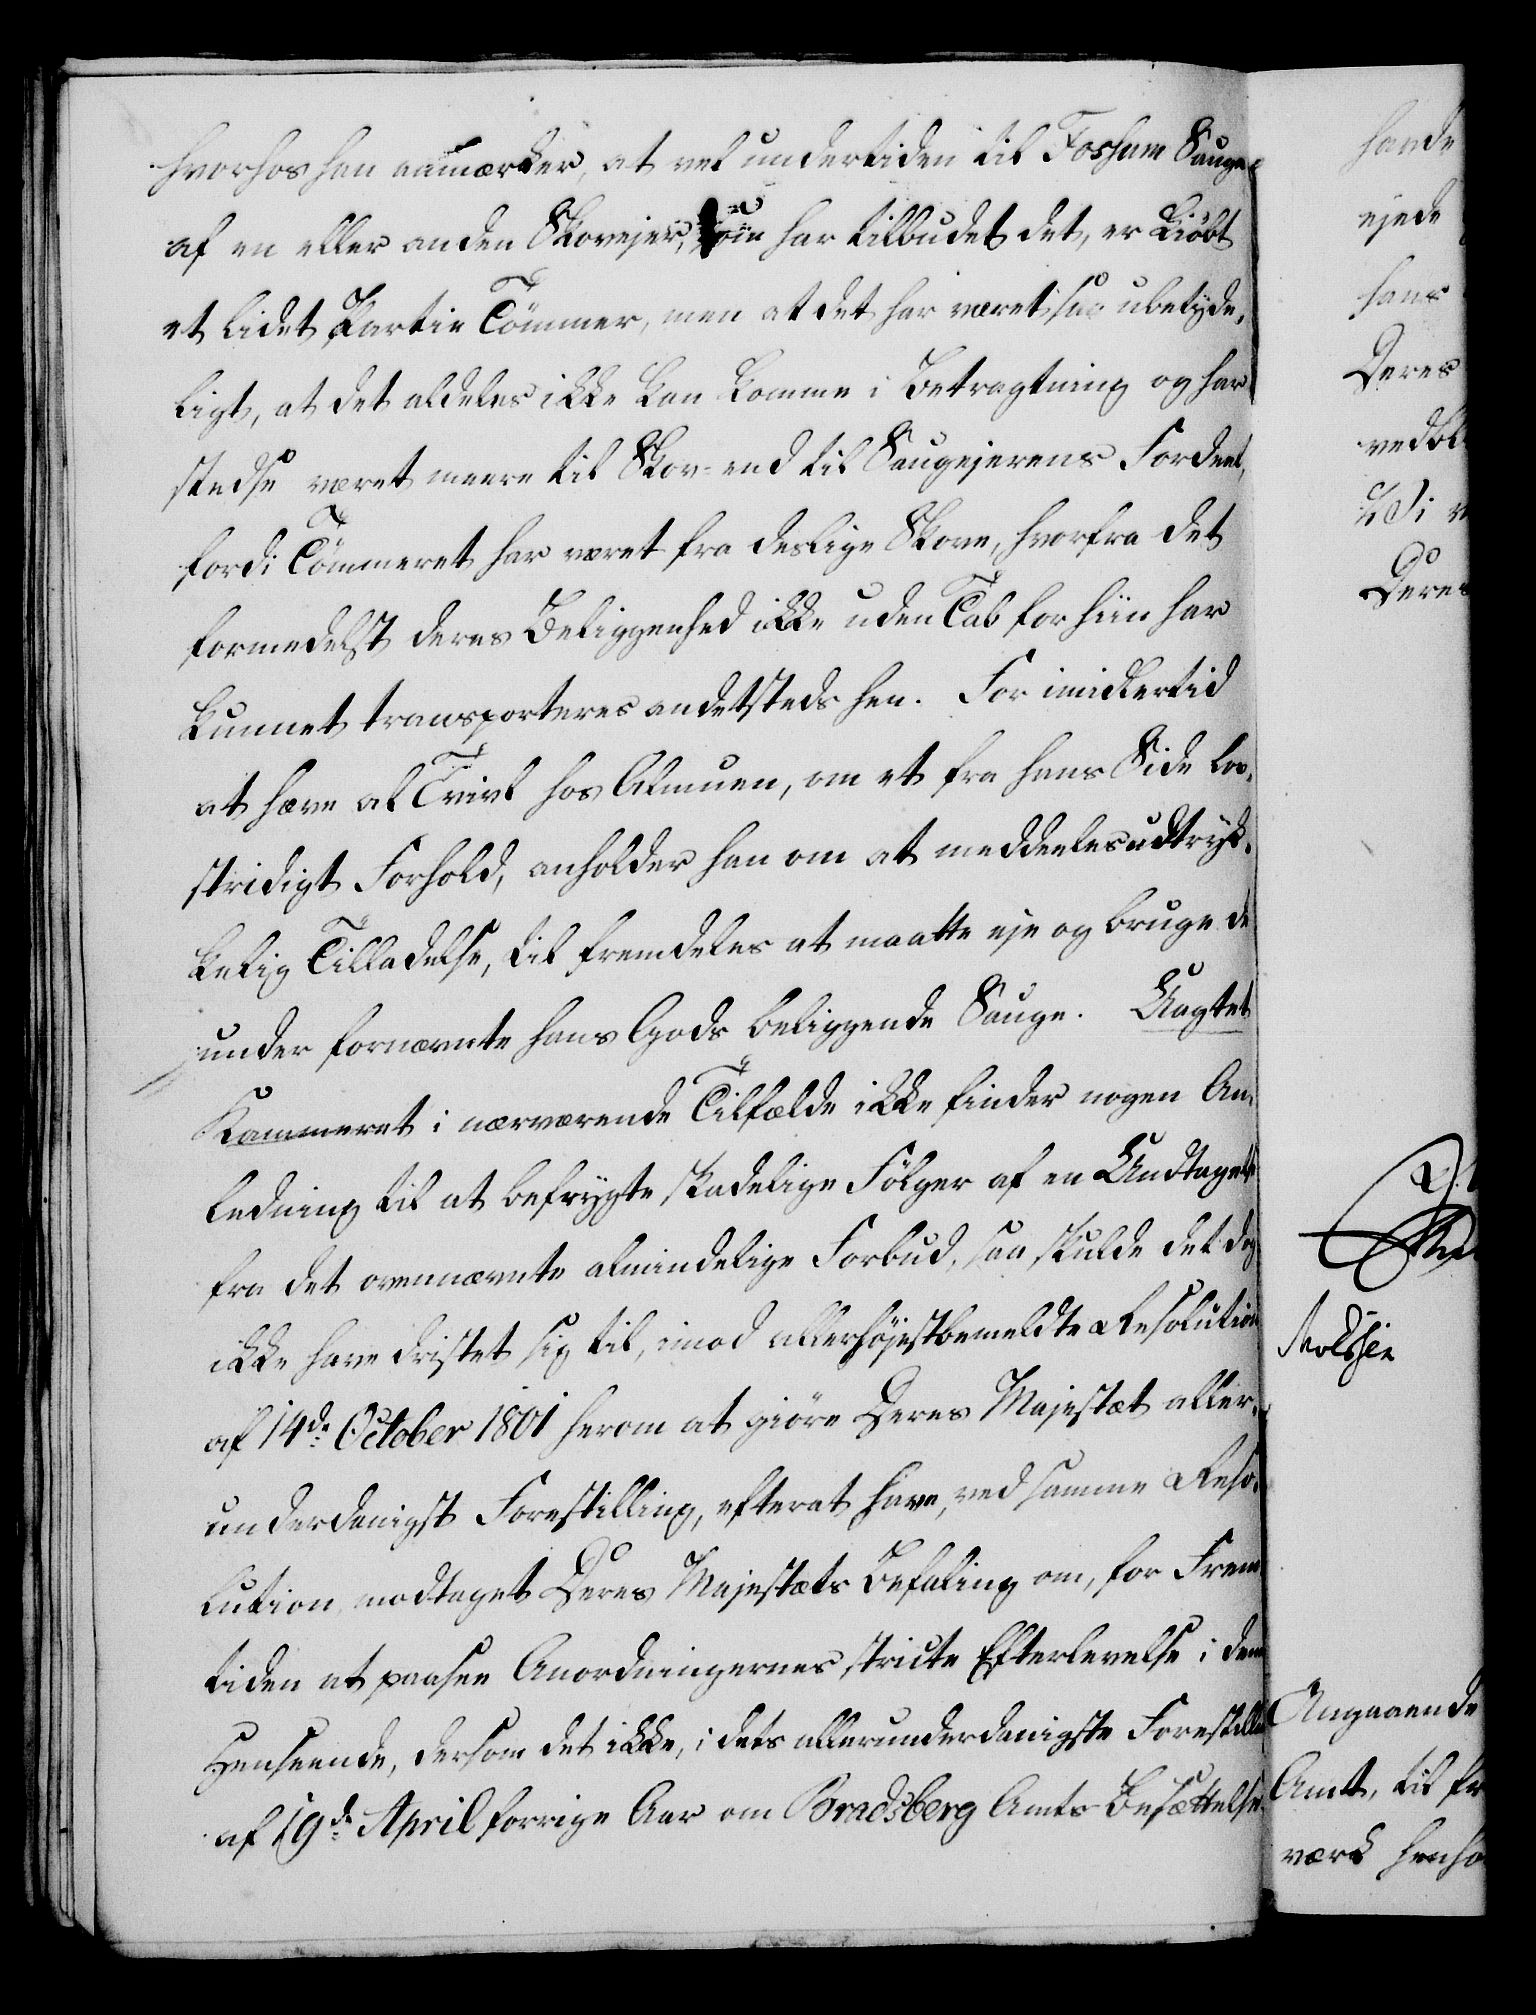 hvorhos han anmærker, at vel undertiden til Fossum Sauge
af en eller anden Skovejer, som har tilbudet det, er kiöbt
et lidet Partie Tömmer, men at det har været saa ubetyde-
ligt, at det aldeles ikke kan komme i Betragtning og har
stedse været meere til Skov- end til Saugejerens Fordeel,
fordi Tömmeret har været fra deslige Skove, hvorfra det
formedelst deres Beliggenhed ikke uden Tab forhiin har
kunnet transporteres andetsteds hen. For imidlertid
at hæve al Tvivl hos Almuen, om et fra hans Side lov-
stridigt Forhold, anholder han om at meddeeles udtryk-
kelig Tilladelse, til fremdeles at maatte eje og bruge de
under fornævnte hans Gods beliggende Sauge. Uagtet
Kammeret i nærværende Tilfælde ikke finder nogen An-
ledning til at befrygte skadelige Fölger af en Undtagelse
fra det ovennævnte almindelige Forbud, saa skulde det dog
ikke have dristet sig til, imod allerhöjestbemeldte Resolution
af 14de October 1801 herom at giöre Deres Majestæt aller-
underdanigst Forestilling, efterat have, ved samme Reso-
lution, modtaget Deres Majestæts Befaling om, for Frem-
tiden at paasee Anordningernes stricte Efterlevelse i den
Henseende, dersom det ikke, i dets allerunderdanigste Forestilling
af 19de April forrige Aar om Bradsberg Amts Besættelse
havde
ejede
hans
Deres
vedbl
Vi
Deres
Angaaende
Amt, til fr
værk henhö